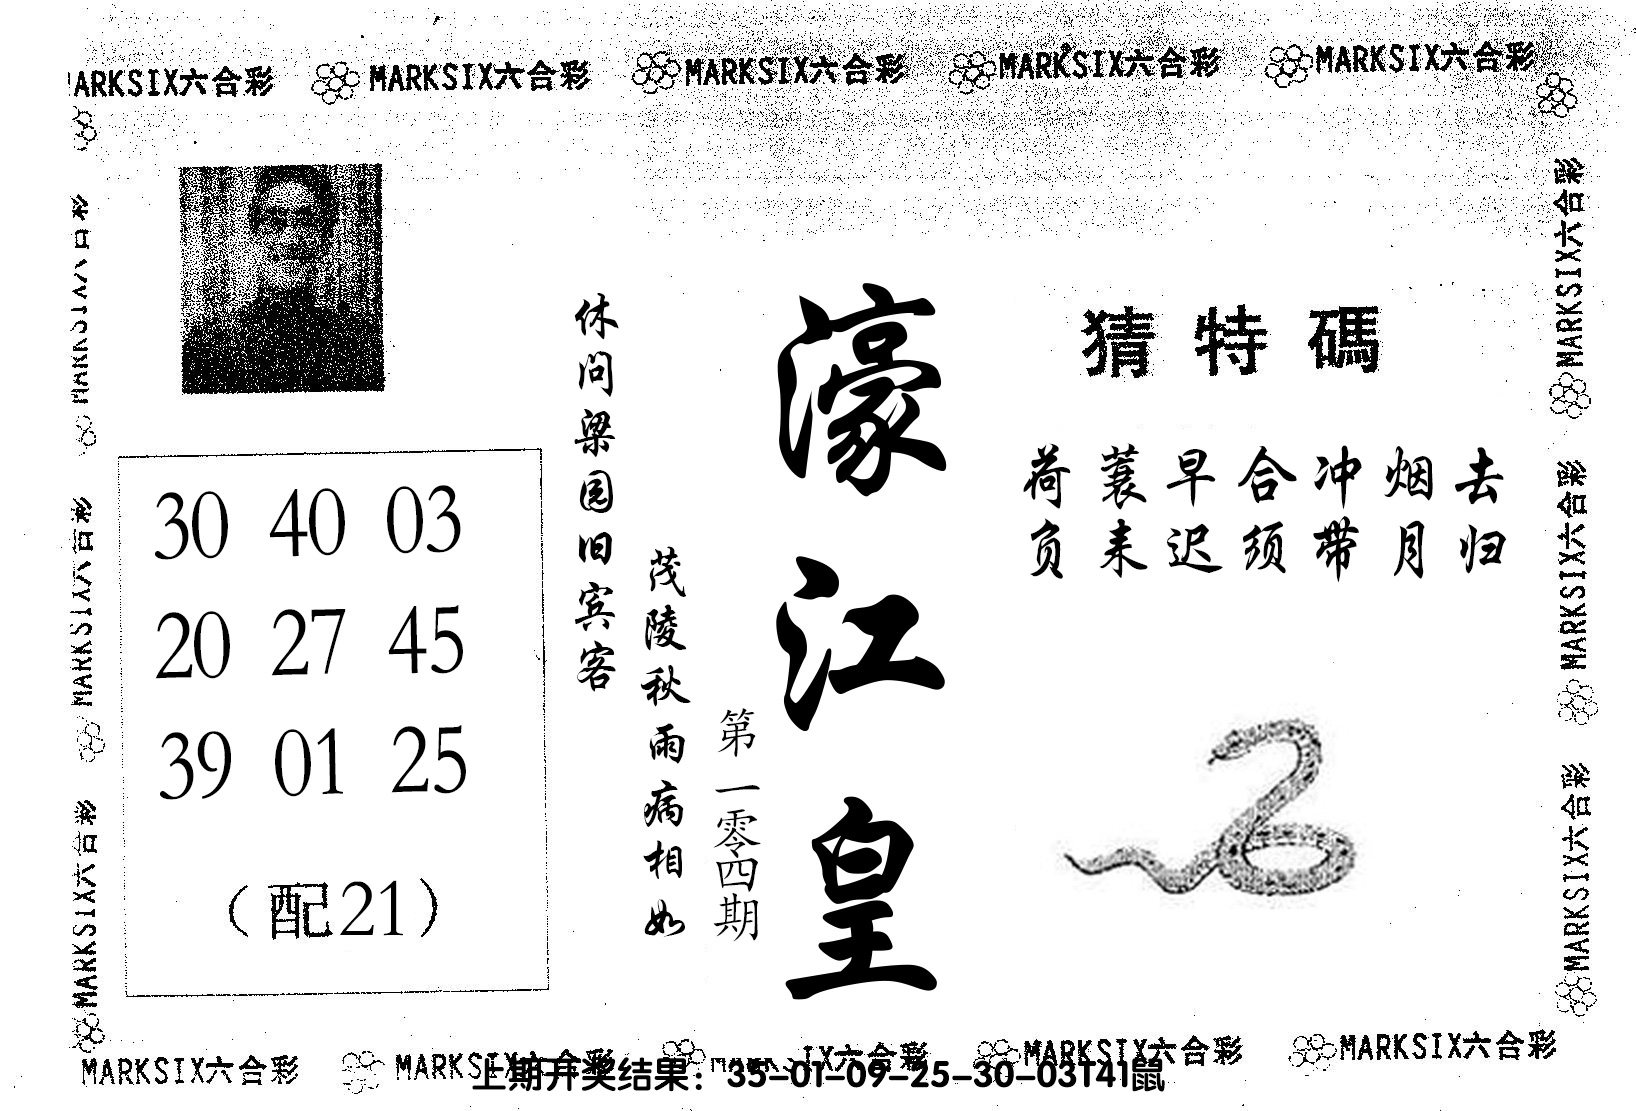 MARKSIX六合彩 MARKSIX六合彩 MARKSIX六合彩 MARKSIX六合彩 MARKSIX六合彩
猜特碼
荷蓑早合冲烟去
负耒迟须带月归
濠江皇
第一零四期
休问梁园旧宾客
茂陵秋雨病相如
30 40 03
20 27 45
39 01 25
（配21）
MARKSIX六合彩
MARKSIX六合彩
MARKSIX六合彩
MARKSIX六合彩
MARKSIX六合彩
MARKSIX六合彩
MARKSIX六合彩 MARKSIX六合彩 IX六合彩 MARKSIX六合彩 MARKSIX六合彩
上期开奖结果：35-01-09-25-30-03T41鼠